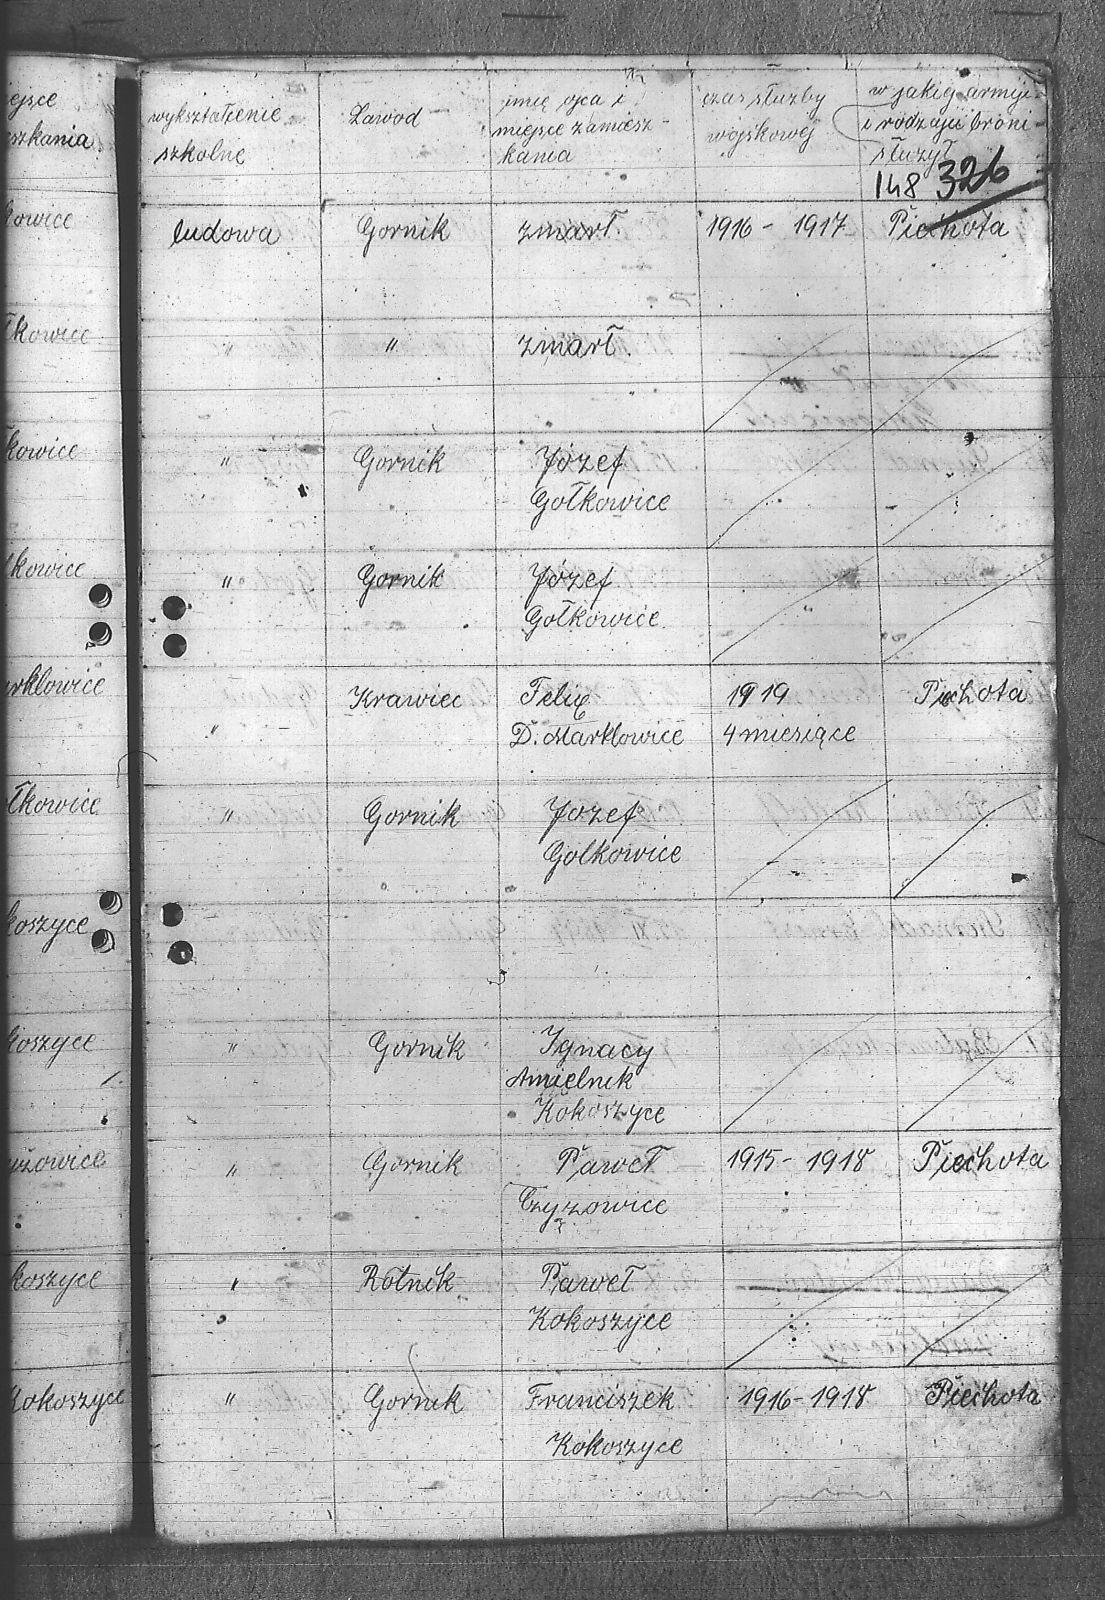 wykształcenie szkolne
Zawod
imię ojca i miejsce zamieszkania
czas służby wojskowej
w jakiej armji i rodzaju broni służył
148 326
kowice ludowa Gornik zmarł. 1916 - 1917 Piechota
łkowice " " zmarł.
kowice " Gornik Józef
Gołkowice
kowice " Gornik Józef
Gołkowice
rklowice " Krawiec Felix 1919 Piechota
D. Marklowice 4 miesiące
łkowice " Gornik Jozef
Golkowice
koszyce
koszyce " Gornik Ignacy
Kokoszyce
żowice " Gornik Paweł 1915 - 1918 Piechota
Czyzowice
koszyce " Rotnik Paweł
Kokoszyce
Kokoszyce " Gornik Franciszek 1916 - 1918 Piechota
Kokoszyce